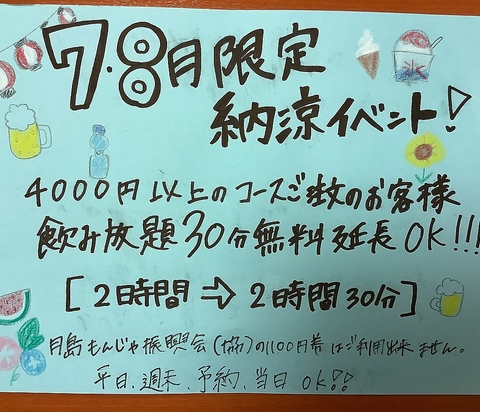 7・8月限定
納涼イベント!
4000円以上のコースご注文のお客様
飲み放題30分無料延長OK!!!
[2時間⇨2時間30分]
月島もんじゃ振興会(協)の1100円券はご利用出来ません。
平日、週末、予約、当日OK!!